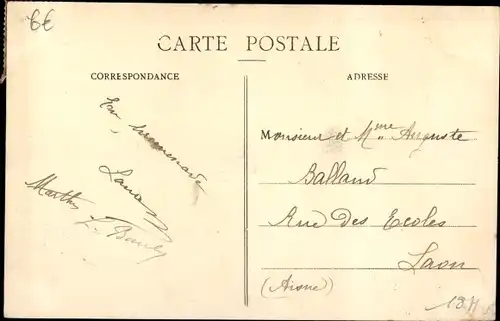 6€
CARTE POSTALE
CORRESPONDANCE
En promenade
Marthe
ADRESSE
Monsieur et Mme Auguste
Balland
Rue des Ecoles
Laon
(Aisne)